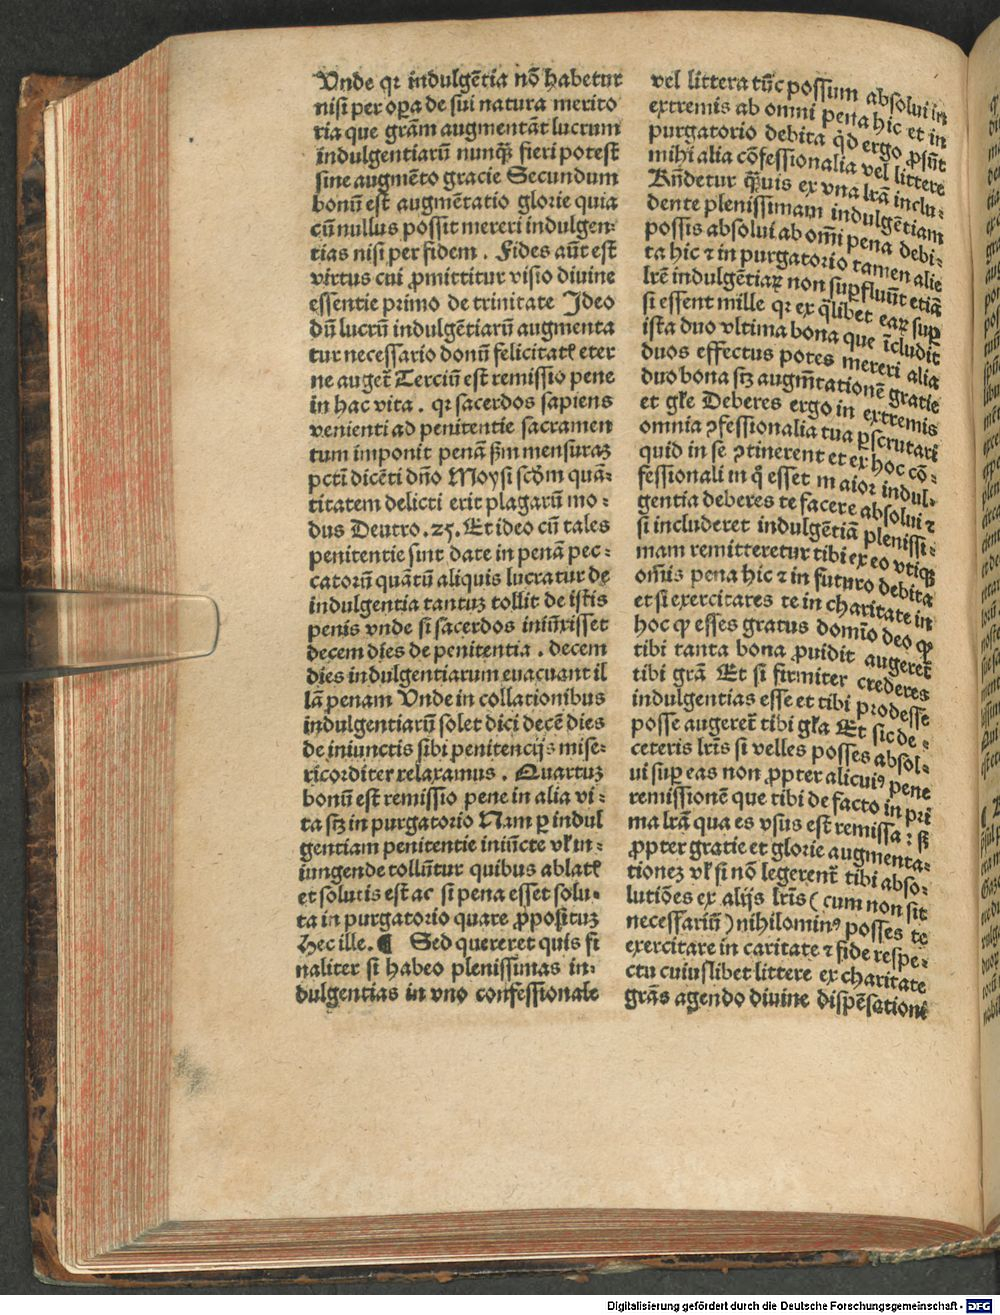 Unde qꝛ indulgẽtia nõ habetur
nisi per oꝑa de sui natura merito
ria que grãm augmentãt lucrum
indulgentiarũ nunqᷓꝫ fieri potest
sine augmẽto gracie Secundum
bonũ est augmẽtatio glorie quia
cũ nullus possit mereri indulgen⸗
tias nisi per fidem . Fides aũt est
virtus cui ꝓmittitur visio diuine
essentie primo de trinitate Ideo
dũ lucrũ indulgẽtiarũ augmenta
tur necessario donũ felicitatꝭ eter
ne auget̃ Terciũ est remissio pene
in hac vita . qꝛ sacerdos sapiens
venienti ad penitentie sacramen
tum imponit penã ẜm mensuraꝫ
pctĩ dicẽti dño Moysi scðm quã⸗
titatem delicti erit plagarũ mo⸗
dus Deutro.25. Et ideo cũ tales
penitentie sint date in penã pec⸗
catorũ quãtũ aliquis lucratur de
indulgentia tantuꝫ tollit de istis
penis vnde si sacerdos iniũxisset
decem dies de penitentia . decem
dies indulgentiarum euacuant il
lã penam Unde in collationibus
indulgentiarũ solet dici decẽ dies
de iniunctis sibi penitencijs mise⸗
ricorditer relaxamus . Quartuꝫ
bonũ est remissio pene in alia vi⸗
ta sꝫ in purgatorio Nam ꝑ indul
gentiam penitentie iniũcte vł in⸗
iungende tollũtur quibus ablatꝭ
et solutis est ac si pena esset solu⸗
ta in purgatorio quare ꝓposituꝫ
Hec ille.¶ Sed quereret quis fi
naliter si habeo plenissimas in⸗
dulgentias in vno confessionale
vel littera tũc possum absolui in
extremis ab omni pena hic et in
purgatorio debita qͥd ergo ꝓsũt
mihi alia cõfessionalia vel littere
Rñdetur qᷓꝫuis ex vna lrã inclu⸗
dente plenissimam indulgẽtiam
possis absolui ab om̃i pena debi⸗
ta hic ⁊ in purgatorio tamen alie
lrẽ indulgẽtiaꝝ non suꝑfluũt etiã
si essent mille qꝛ ex qͣlibet eaꝝ suꝑ
ista duo vltima bona que ĩcludit
duos effectus potes mereri alia
duo bona sꝫ augm̃tationẽ gratie
et głe Deberes ergo in extremis
omnia ꝯfessionalia tua ꝑscrutari
quid in se ꝯtinerent et ex hoc cõ⸗
fessionali in qͦ esset maior indul⸗
gentia deberes te facere absolui ⁊
si includeret indulgẽtiã plenissi⸗
mam remitteretur tibi ex eo vtiqꝫ
om̃is pena hic ⁊ in futuro debita
et si exercitares te in charitate in
hoc ꝙ esses gratus domĩo deo ꝙ
tibi tanta bona ꝓuidit augeret̃
tibi grã Et si firmiter crederes
indulgentias esse et tibi prodesse
posse augeret̃ tibi głᷓa Et sic de⸗
ceteris lrĩs si velles posses absol⸗
ui suꝑ eas non ꝓpter alicuiꝰ pene
remissionẽ que tibi de facto in pri
ma lrã qua es vsus est remissa : sꝫ
ꝓpter gratie et glorie augmenta⸗
tioneꝫ vł si nõ legerent̃ tibi abso⸗
lutiões ex alijs lrĩs ( cum non sit
necessariũ ) nihilominꝰ posses te
exercitare in caritate ⁊ fide respe⸗
ctu cuiuslibet littere ex charitate
grãs agendo diuine dispẽsationi
Digitalisierung gefördert durch die Deutsche Forschungsgemeinschaft - DFG